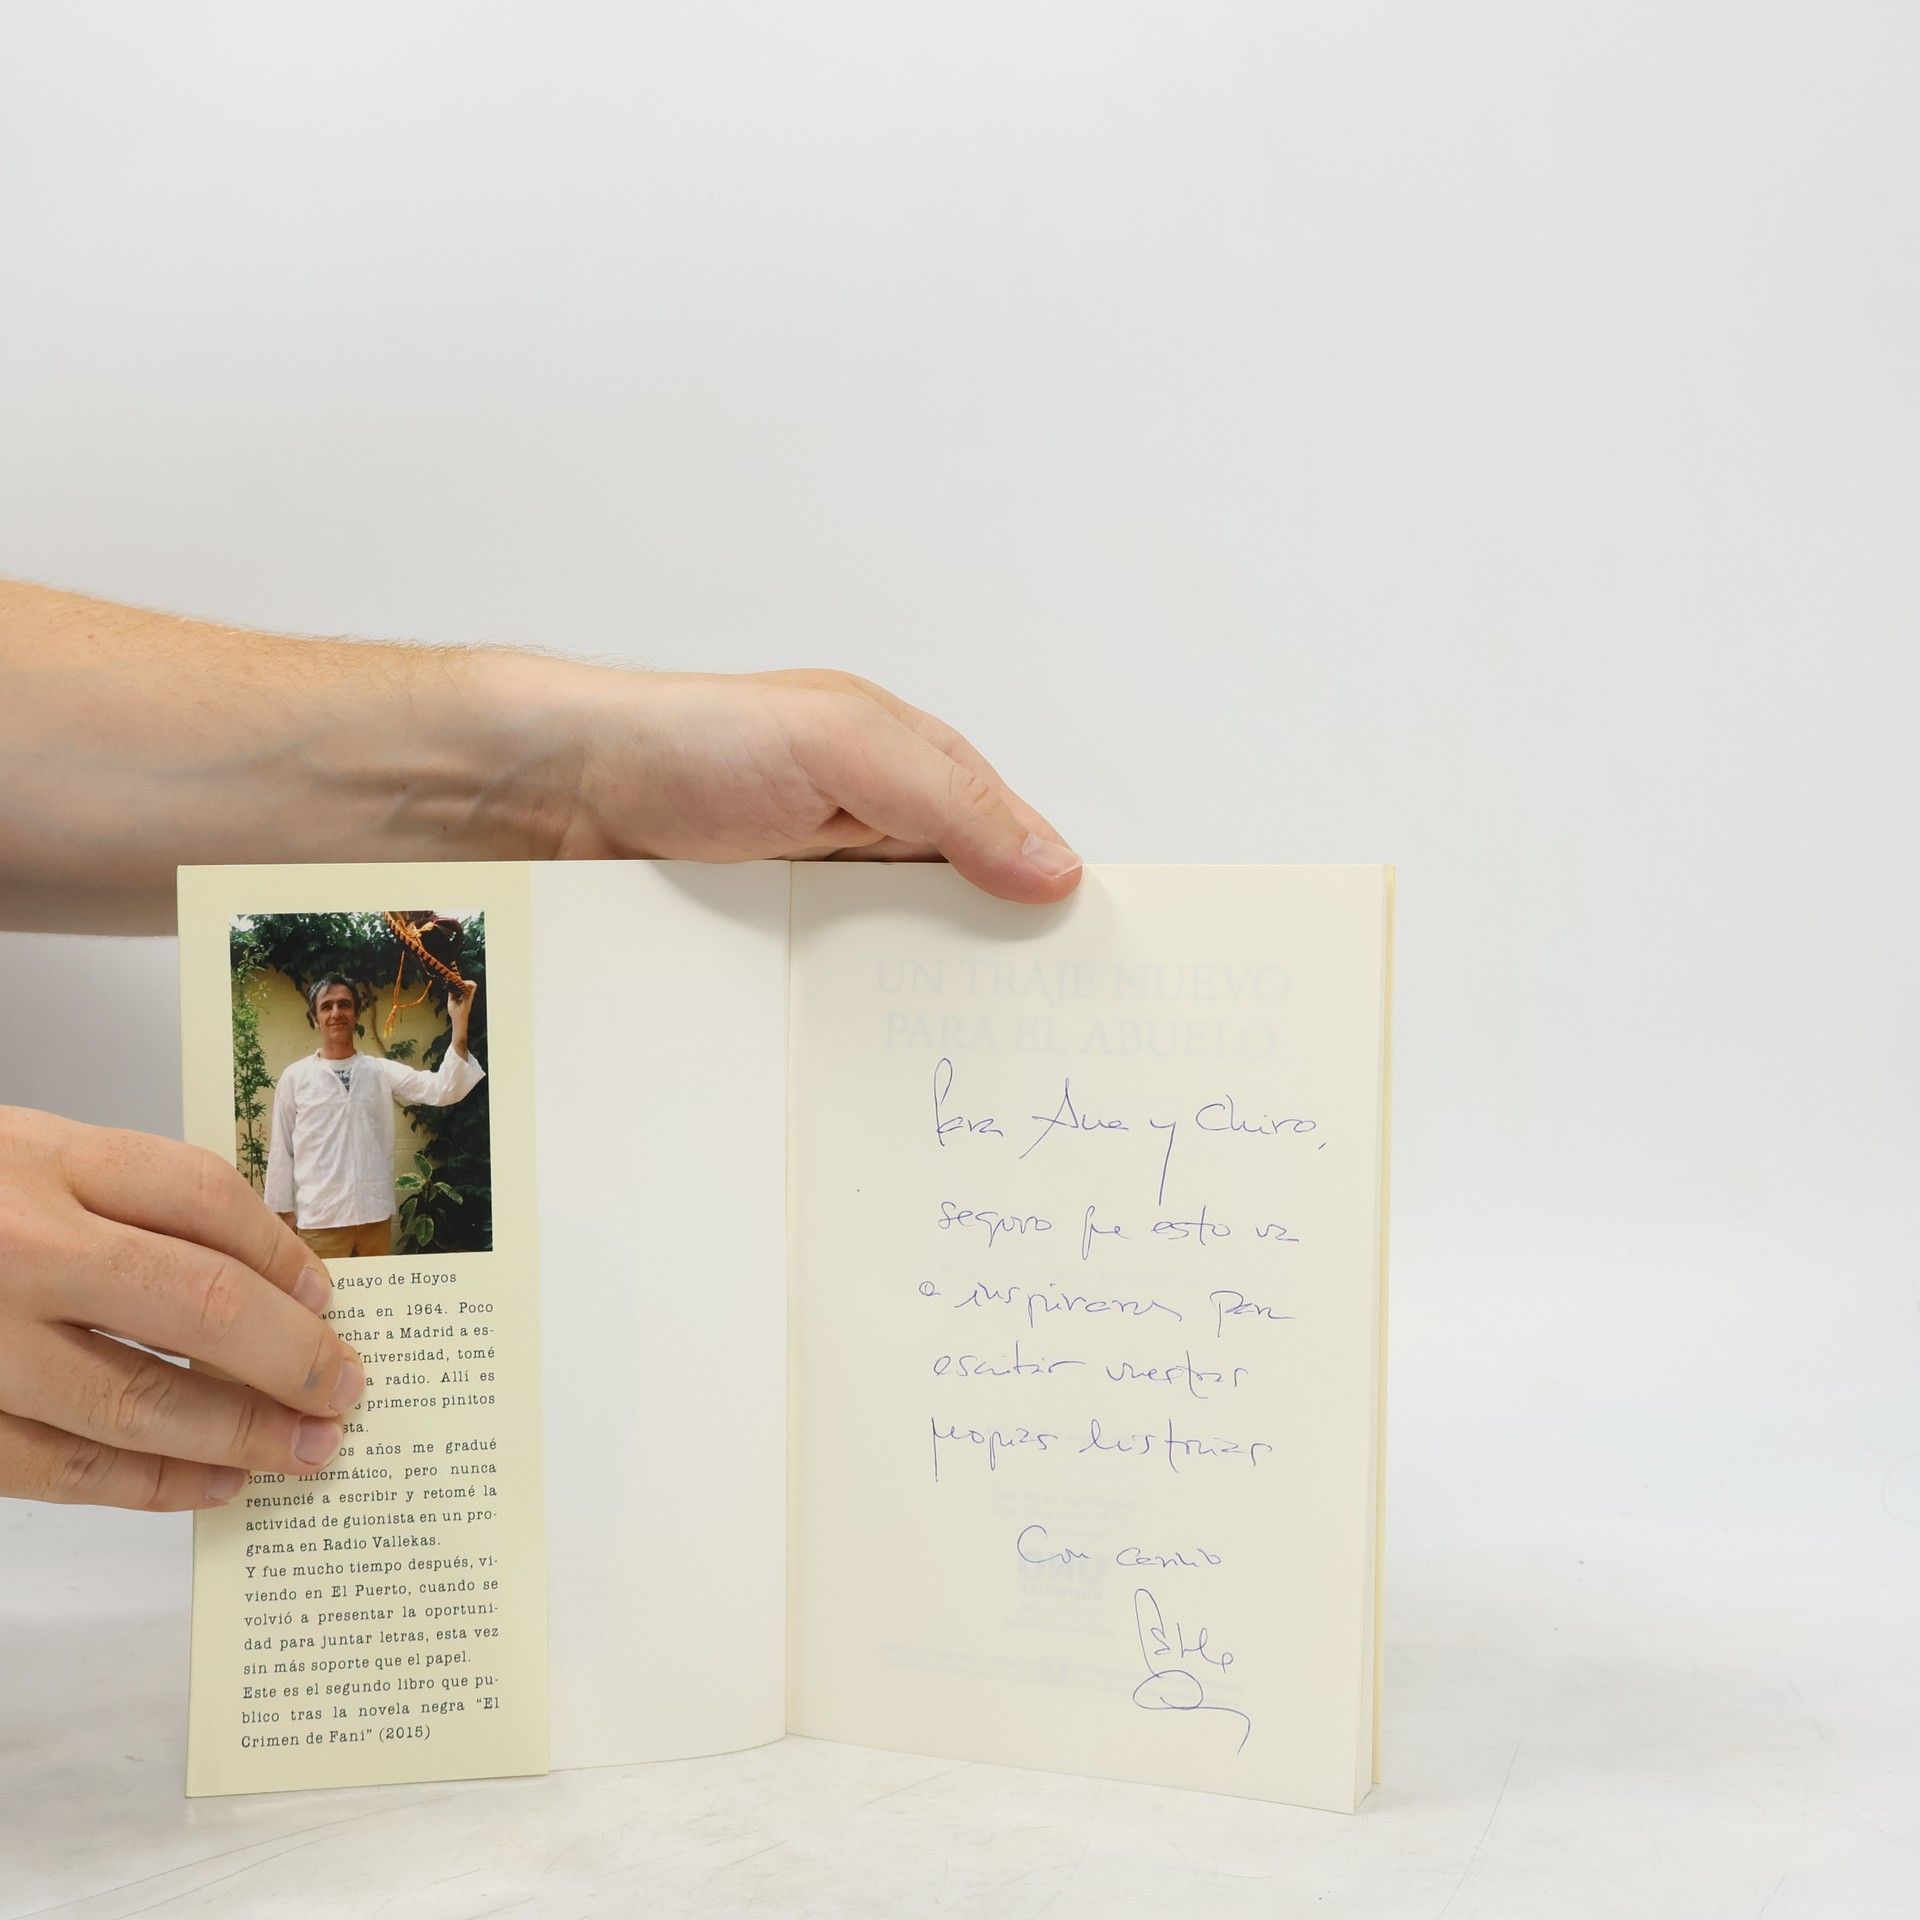 Aguayo de Hoyos
onda en 1964. Poco
rchar a Madrid a es-
niversidad, tomé
a radio. Allí es
primeros pinitos
sta.
os años me gradué
como informático, pero nunca
renuncié a escribir y retomé la
actividad de guionista en un pro-
grama en Radio Vallekas.
Y fue mucho tiempo después, vi-
viendo en El Puerto, cuando se
volvió a presentar la oportuni-
dad para juntar letras, esta vez
sin más soporte que el papel.
Este es el segundo libro que pu-
blico tras la novela negra “El
Crimen de Fani” (2015)
UN TRAJE NUEVO
PARA EL ABUELO
Para Ana y Chiro,
seguro que esto va
a inspiraros para
escribir vuestras
propias historias
Con cariño
Pablo
UNO
EDITORIAL